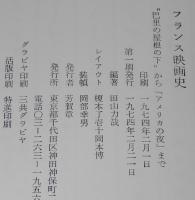 フランス映画史
"巴里の屋根の下"から"アメリカの夜"まで
印刷 一九七四年二月一日
第一刷発行 一九七四年二月二一日
編著 田山力哉
レイアウト 榎本了壱十岡本博
装幀 岡部幸男
発行者 芳賀章
発行所
東京都千代田区神田神保町
電話〇三―二六三―一九五
グラビヤ印刷 三共グラビヤ
活版印刷 特美印刷